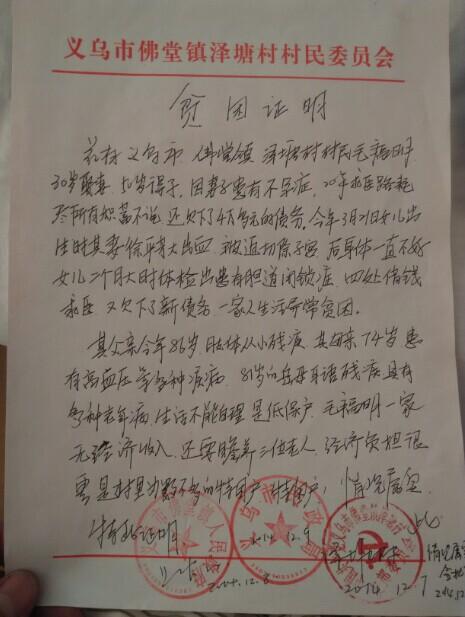 义乌市佛堂镇泽塘村村民委员会
贫困证明
兹有义乌市佛堂镇泽塘村村民毛福明
30岁娶妻 50岁得子, 因妻子患有不孕症, 20年求医路耗
尽所有积蓄不说, 还欠下了4万多元的债务. 今年3月21日女儿出
生时其妻徐 大出血 被迫切除子宫 后身体一直不好
女儿二个月大时体检出患有胆道闭锁症, 四处借钱
求医 又欠下了新债务 一家人生活异常贫困.
其父亲今年86岁 肢体从小残疾 其母亲74岁 患
有高血压等各种疾病 81岁的岳母耳语残疾且有
多种老年病, 生活不能自理 是低保户 毛福明一家
无经济收入, 还要赡养三位老人, 经济负担很
重 是 村里为数不多的特困户, 情况属实.
特此证明
义乌市佛堂镇人民政府
义乌市民政局
2014.12.8
2014.12.9
2014.12.7
情况属实